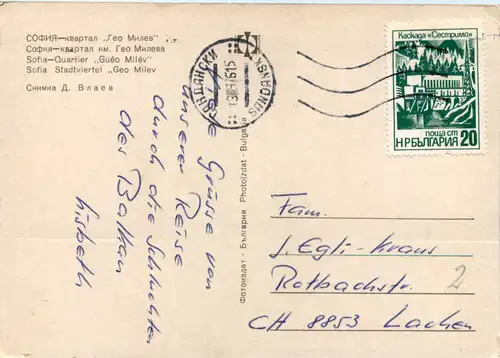 СОФИЯ—квартал „Гео Милев"
София—квартал им. Гео Милева
Sofia-Quartier „Guéo Milév"
Sofia Stadtviertel „Geo Milev
Снимка Д. Влаев
Grüsse von
unserer Reise
durch die Schluchten
des Balkan
Lisbeth
Фотоиздат - България Photoizdat - Bulgaria
САНДАНСКИ
SANDANSKI
Каскада „Сестримо"
поща ст
НР БЪЛГАРИЯ 20
Fam.
J. Egli-Kraus
Rotbachstr.
2
CH 8853 Lachen